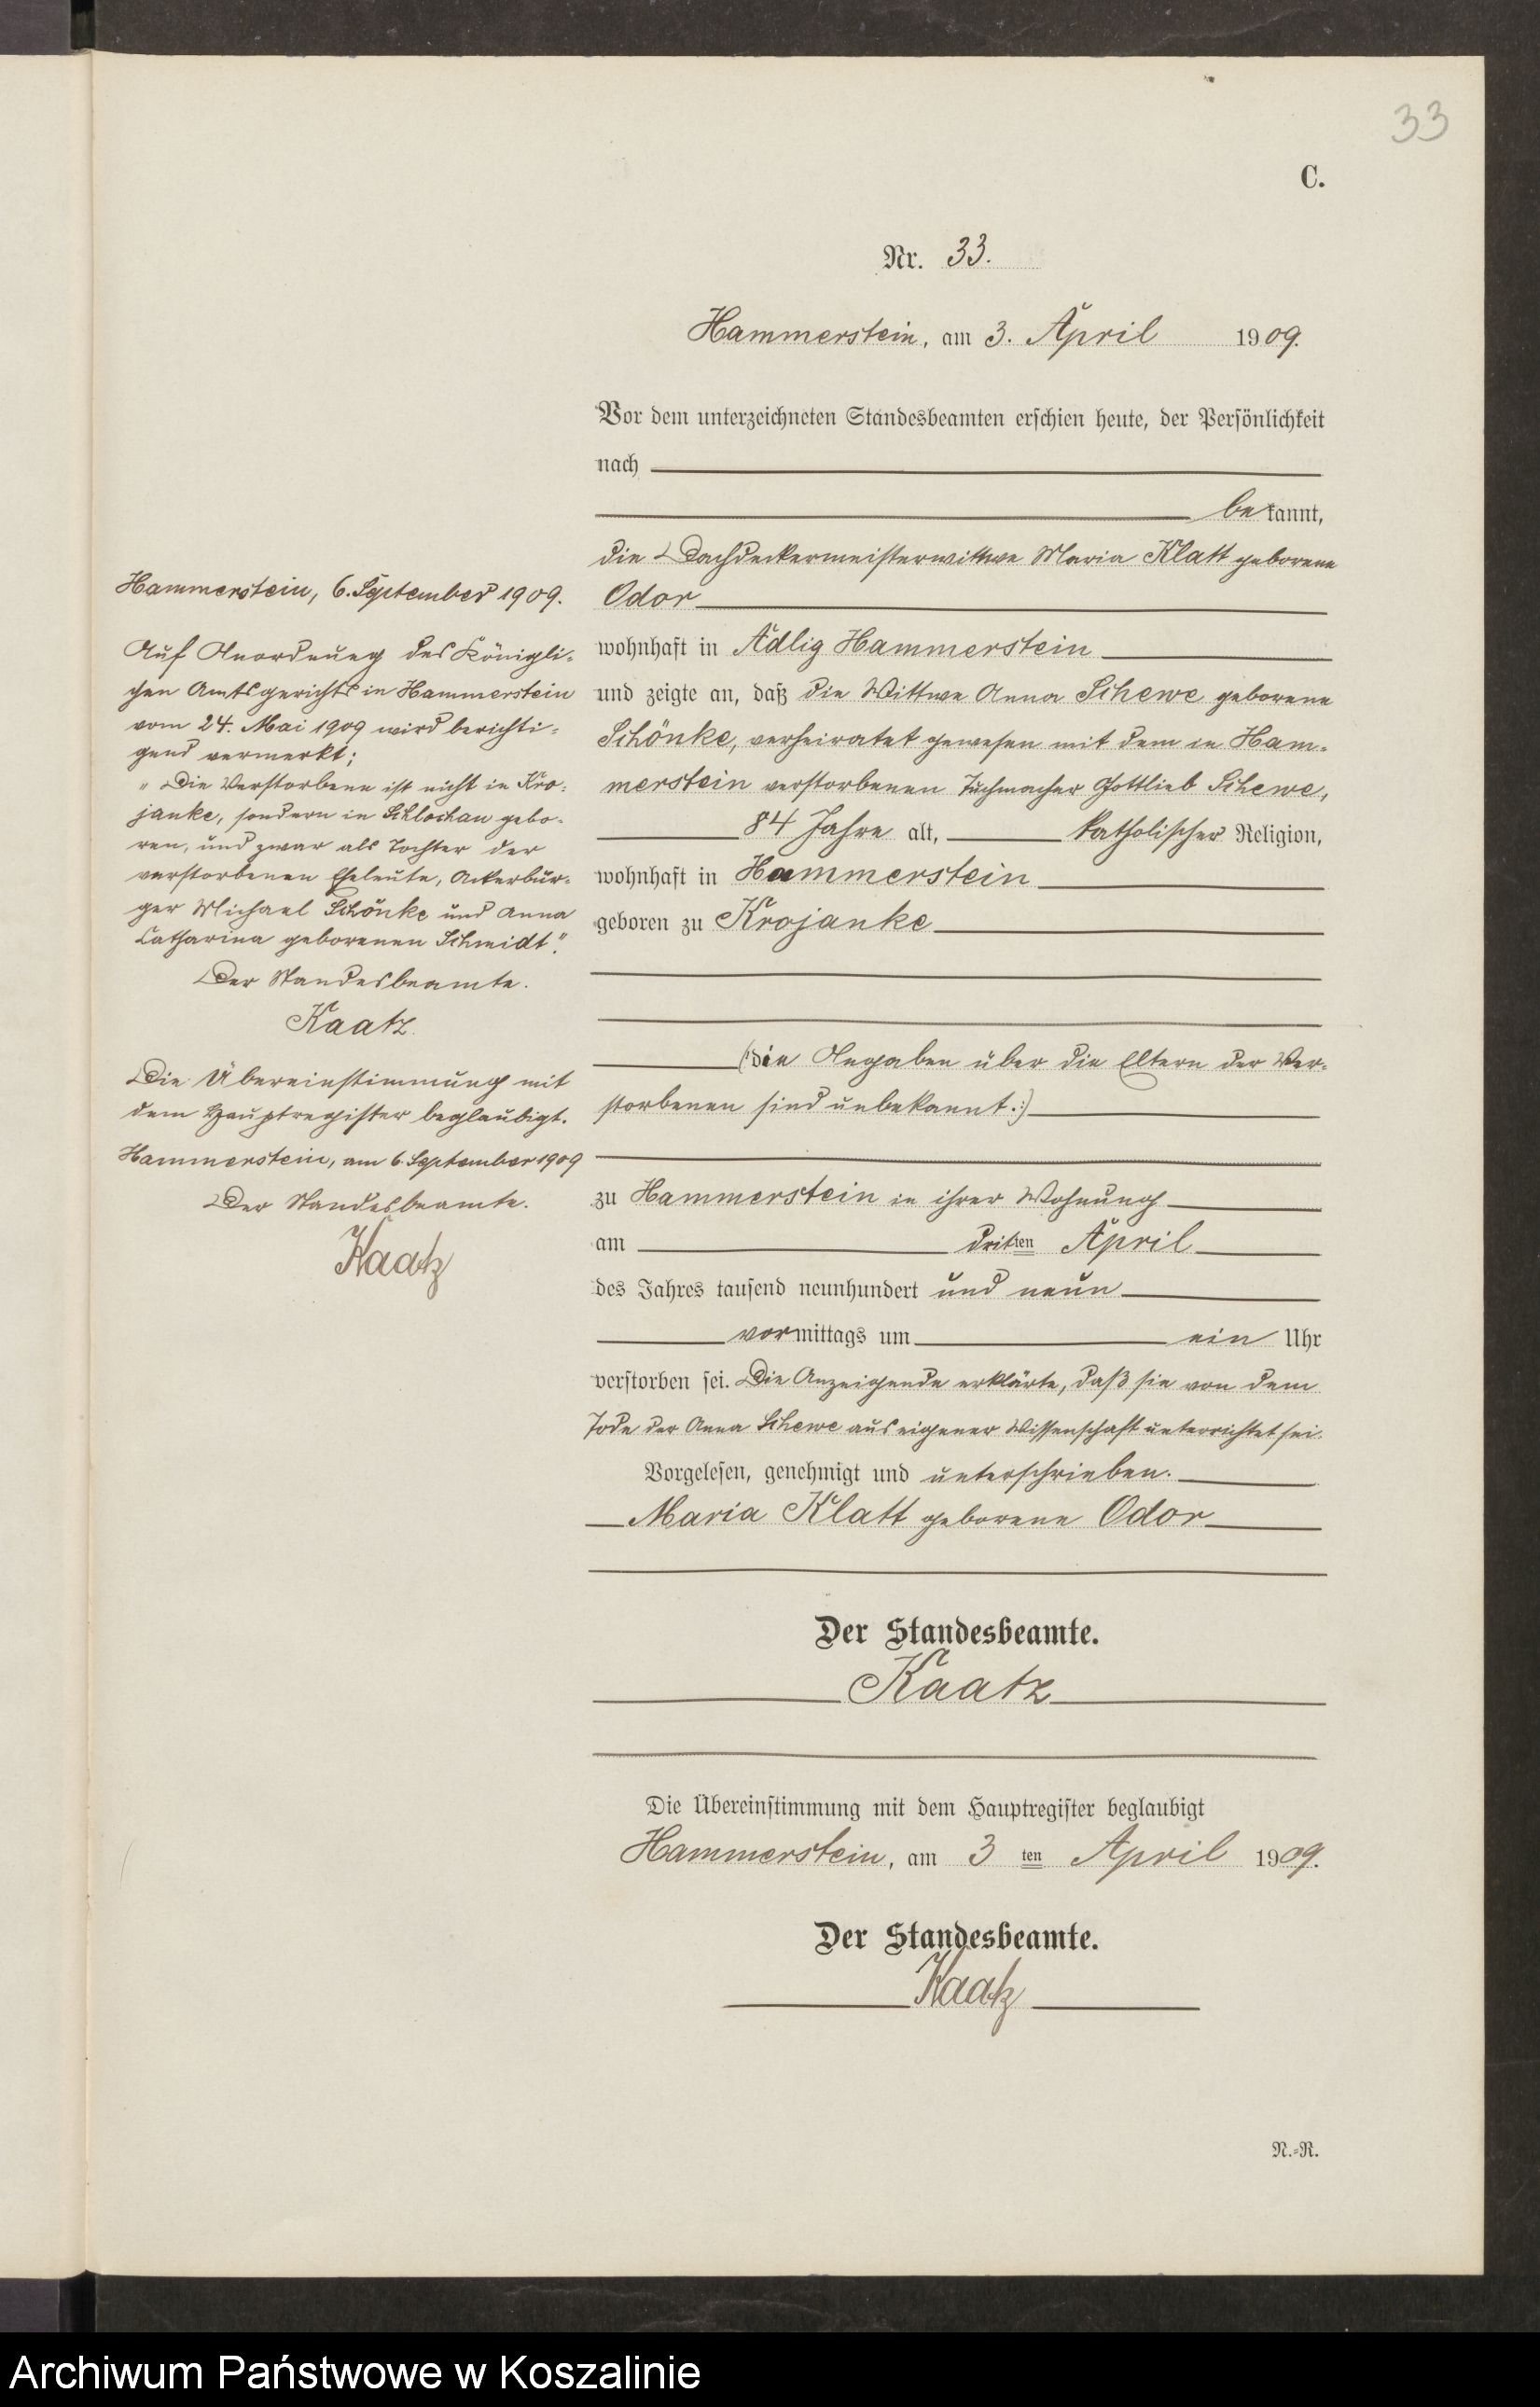 33
C.
Nr. 33.
Hammerstein, am 3. April 1909.
Vor dem unterzeichneten Standesbeamten erschien heute, der Persönlichkeit
nach
bekannt,
die Dachdeckermeisterwittwe Maria Klatt geborene
Odor
wohnhaft in Adlig Hammerstein
und zeigte an, daß die Wittwe Anna Schewe geborene
Schönke, verheiratet gewesen mit dem in Ham-
merstein verstorbenen Tuchmacher Gottlieb Schewe,
84 Jahre alt, katholischer Religion,
wohnhaft in Hammerstein
geboren zu Krojanke
(:die Angaben über die Eltern der Ver-
storbenen sind unbekannt.:)
zu Hammerstein in ihrer Wohnung
am dritten April
des Jahres tausend neunhundert und neun
vormittags um ein Uhr
verstorben sei. Die Anzeigende erklärte, daß sie von dem
Tode der Anna Schewe aus eigener Wissenschaft unterrichtet sei.
Vorgelesen, genehmigt und unterschrieben.
Maria Klatt geborene Odor
Der Standesbeamte.
Kaatz
Die Übereinstimmung mit dem Hauptregister beglaubigt
Hammerstein, am 3 ten April 1909.
Der Standesbeamte.
Kaatz
N.-R.
Hammerstein, 6. September 1909.
Auf Anordnung des Königli-
chen Amtsgerichts in Hammerstein
vom 24. Mai 1909 wird berichti-
gend vermerkt:
"Die Verstorbene ist nicht in Kro-
janke, sondern in Schlochau gebo-
ren, und zwar als Tochter der
verstorbenen Eheleute, Ackerbür-
ger Michael Schönke und Anna
Catharina geborenen Schmidt".
Der Standesbeamte.
Kaatz
Die Übereinstimmung mit
dem Hauptregister beglaubigt.
Hammerstein, am 6. September 1909
Der Standesbeamte.
Kaatz
Archiwum Państwowe w Koszalinie